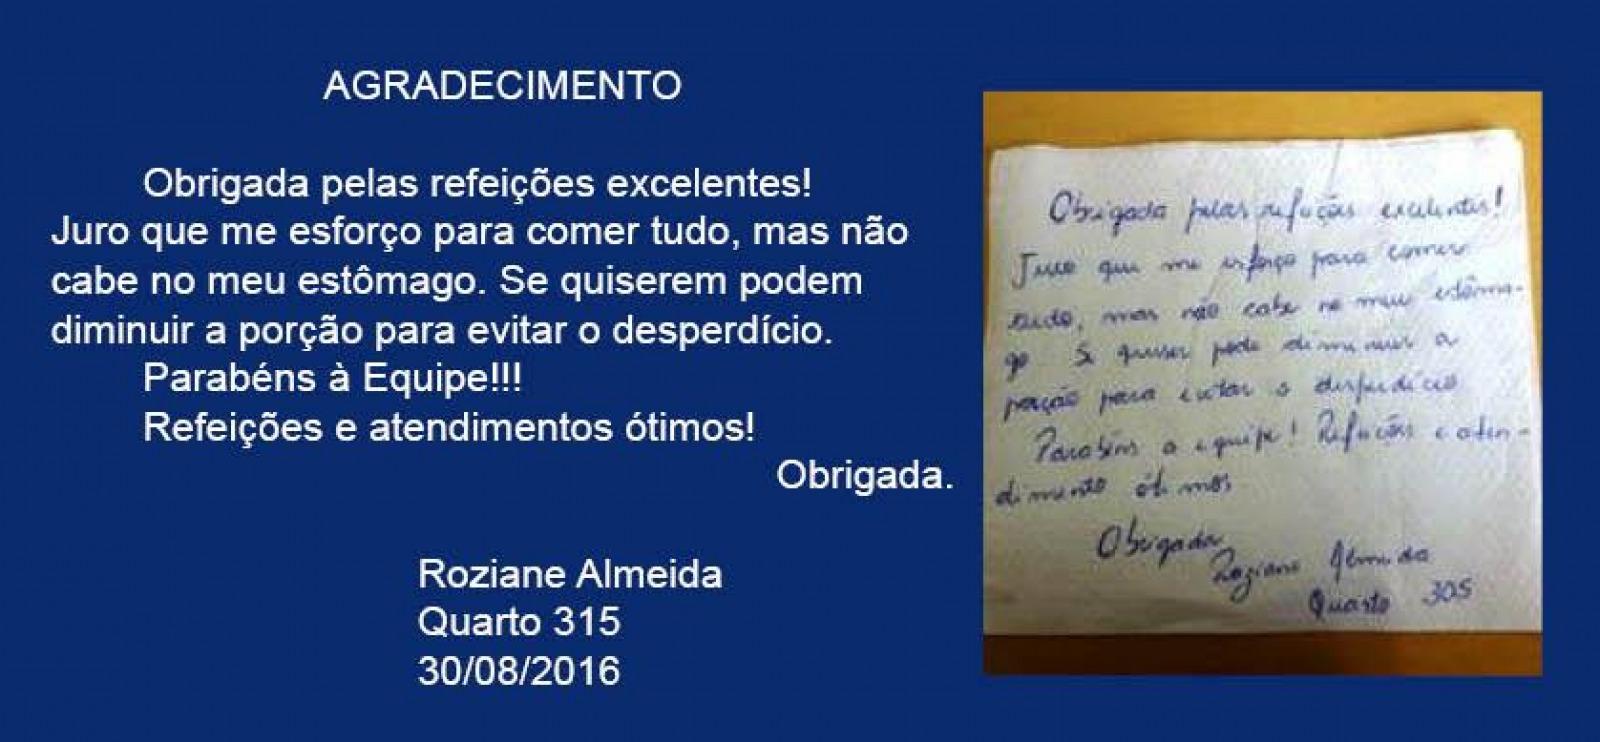 AGRADECIMENTO
Obrigada pelas refeições excelentes!
Juro que me esforço para comer tudo, mas não
cabe no meu estômago. Se quiserem podem
diminuir a porção para evitar o desperdício.
Parabéns à Equipe!!!
Refeições e atendimentos ótimos!
Obrigada.
Roziane Almeida
Quarto 315
30/08/2016
Obrigada pelas refeições excelentes!
Juro que me esforço para comer
tudo, mas não cabe no meu estôma-
go Se quiser pode diminuir a
porção para evitar o desperdício
Parabéns a equipe! Refeições e aten-
dimento ótimos
Obrigada
Roziane Almeida
Quarto 305